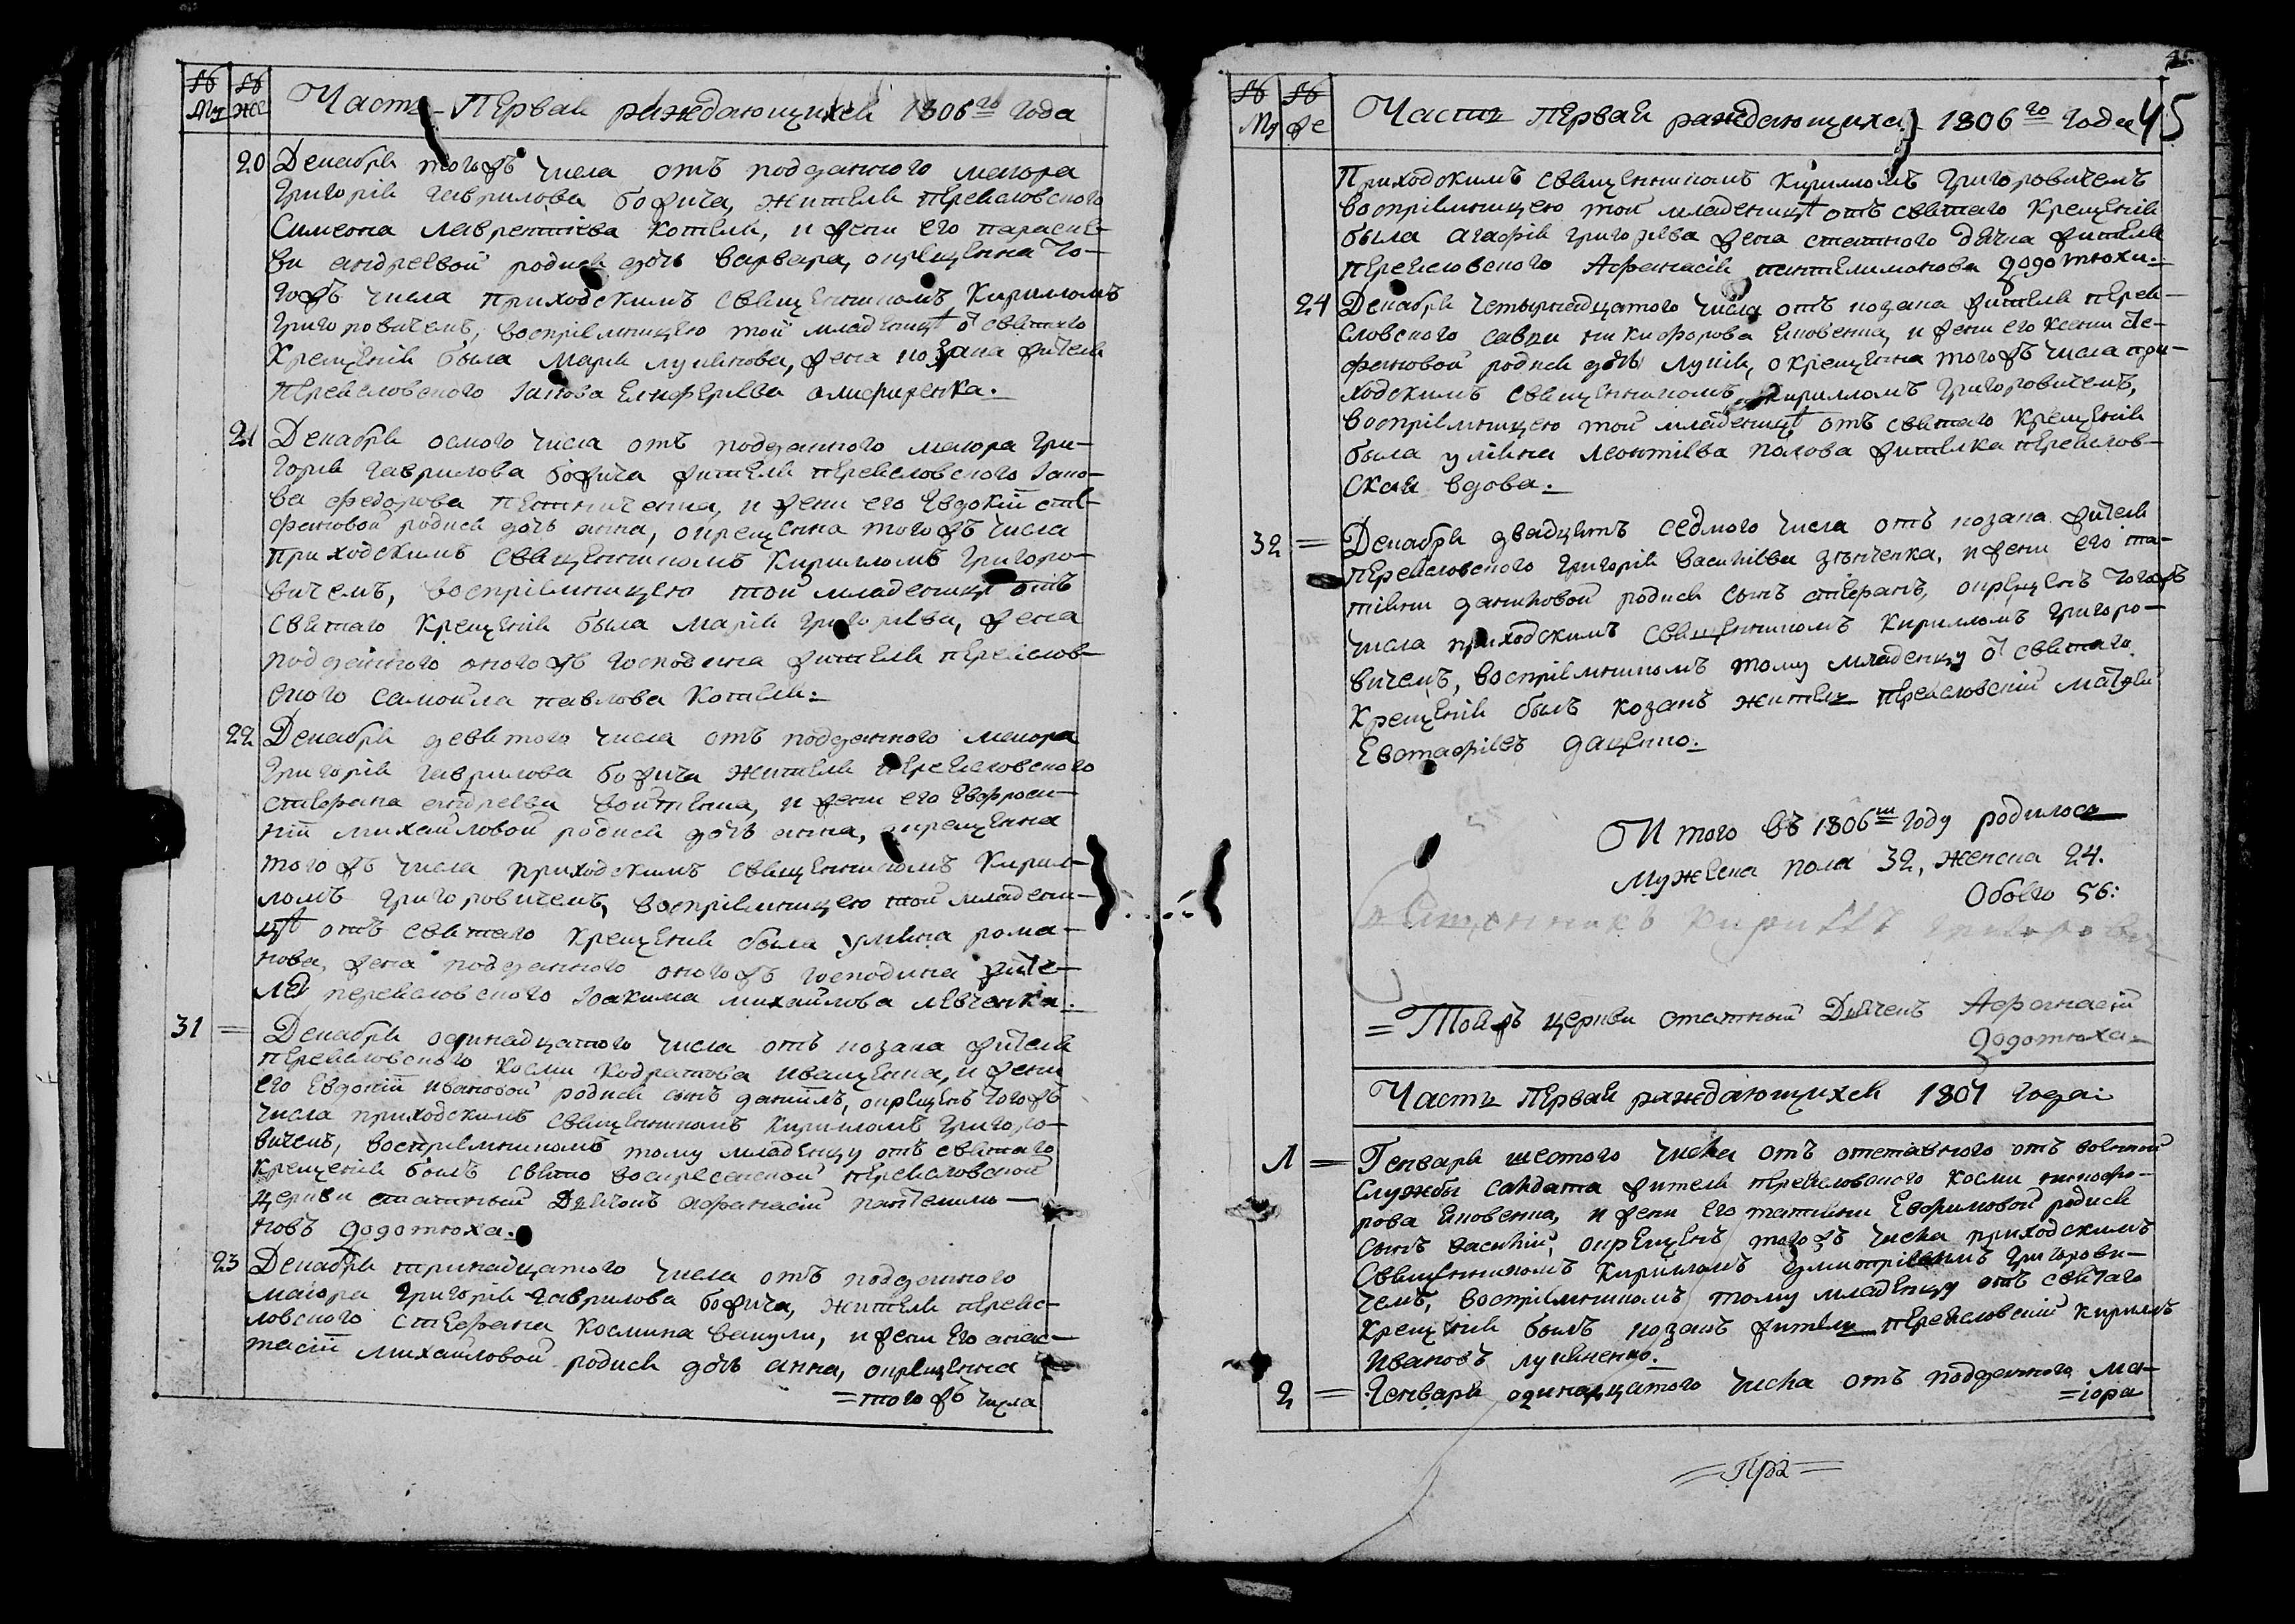 № Му № же Часть Первая раждающихся 1806го года
20 Декабря тогожъ числа отъ подданного маиора
Григорія Гаврилова божича, жителя переясловского
Симеона Лаврентіева Котели, и жени его Параске-
ви андреевой родися дочь варвара, окрещенна то-
гожъ числа приходскимъ священникомъ Кириломъ
Григоровичемъ, воспріемницею той младеницѣ ѿ святаго
Крещенія была Марія лукянова, жена козака жителя
Переясловского Іакова Елиферіева
21 Декабря осмого числа отъ подданного маиора Гри-
горія Гаврилова божича жителя переясловского Іако-
ва федорова и жени его Евдокіи сте-
фановой родися дочь анна, окрещенна тогожъ числа
приходскимъ священникомъ Кириломъ Григоро-
вичемъ, воспріемницею той младеницѣ отъ
святаго Крещенія была Марія григоріева, жена
подданного оногожъ господина жителя переяслов-
ского самойла павлова Котели:
22 Декабря девятого числа отъ подданного маиора
Григорія Гаврилова божича жителя переясловского
стефана андреева и жени его Евфроси-
ніи михайловой родися дочь анна, окрещенна
тогожъ числа приходскимъ священникомъ Кирил-
ломъ григоровичемъ, воспріемницею той младени-
цѣ отъ святаго Крещенія была уліяна рома-
нова, жена подданного оногожъ господина жите-
ля переясловского Іоакима михайлова левченка.
31 = Декабря осминадцатого числа отъ козака жителя
переясловского Косми Кодратова иващенка, и жени
его Евдокіи ивановой родися сынъ даниилъ, окрещенъ тогожъ
числа приходскимъ священникомъ Кириломъ Григоро-
вичемъ, воспріемникомъ тому младенцу отъ святаго
крещенія былъ свято воскресенской переясловской
церкви статный Дьячокъ афанасій пантелимо-
новъ додотюха.
23 Декабря тринадцатого числа отъ подданного
маіора Григорія Гаврилова божича, жителя переяс-
ловского стефана Космина и жени его анас-
тасіи михайловой родися дочь анна, окрещенна
=тогожъ числа
№ Му № же Часть Первая раждающихся 1806го года 45
Приходскимъ священникомъ Кириломъ Григоровичемъ
воспріемницею той младеницѣ отъ святаго Крещенія
была агафія григоріева жена статного дячка жителя
переясловского Афанасія пантелимонова додотюхи.
24 Декабря четырнадцатого числа отъ козака жителя перея-
словского савви никифорова и жени его ксении сте-
фановой родися дочь лукія, окрещенна тогожъ числа при-
ходскимъ священникомъ кириломъ григоровичемъ,
воспріемницею той младеницѣ отъ святаго Крещенія
была уліяна леонтіева жителка переяслов-
ская вдова.
32 = Декабря двадцять седмого числа отъ козака жителя
переясловского григорія василіева и жени его та-
тіяни даниловой родися сынъ стефанъ, окрещенъ тогожъ
числа приходскимъ священникомъ Кириломъ Григоро-
вичемъ, воспріемникомъ тому младенцу ѿ святаго
Крещенія былъ козакъ житель переясловскій матфей
Евстафіевъ даценко.
И того въ 1806мъ году родилось
Мужеска пола 32, женска 24.
Обоего 56:
Священникъ Кириллъ Григорович
= Тояжъ церкви статный Дьячекъ Афанасій
додотюха
Часть Первая раждающихся 1807 года
1 = Генваря шестого числа отъ отставного отъ военной
службы салдата жителя переясловского Косми никифо-
рова и жени его татіяни Ефримовой родися
сынъ василій, окрещенъ тогожъ числа приходскимъ
Священникомъ Кириломъ григорови-
чемъ, воспріемникомъ тому младенцу отъ святаго
крещенія былъ козакъ житель переясловскій Кирилъ
Ивановъ лукяненко.
2 = Генваря одинадцатого числа отъ подданного ма-
=іора